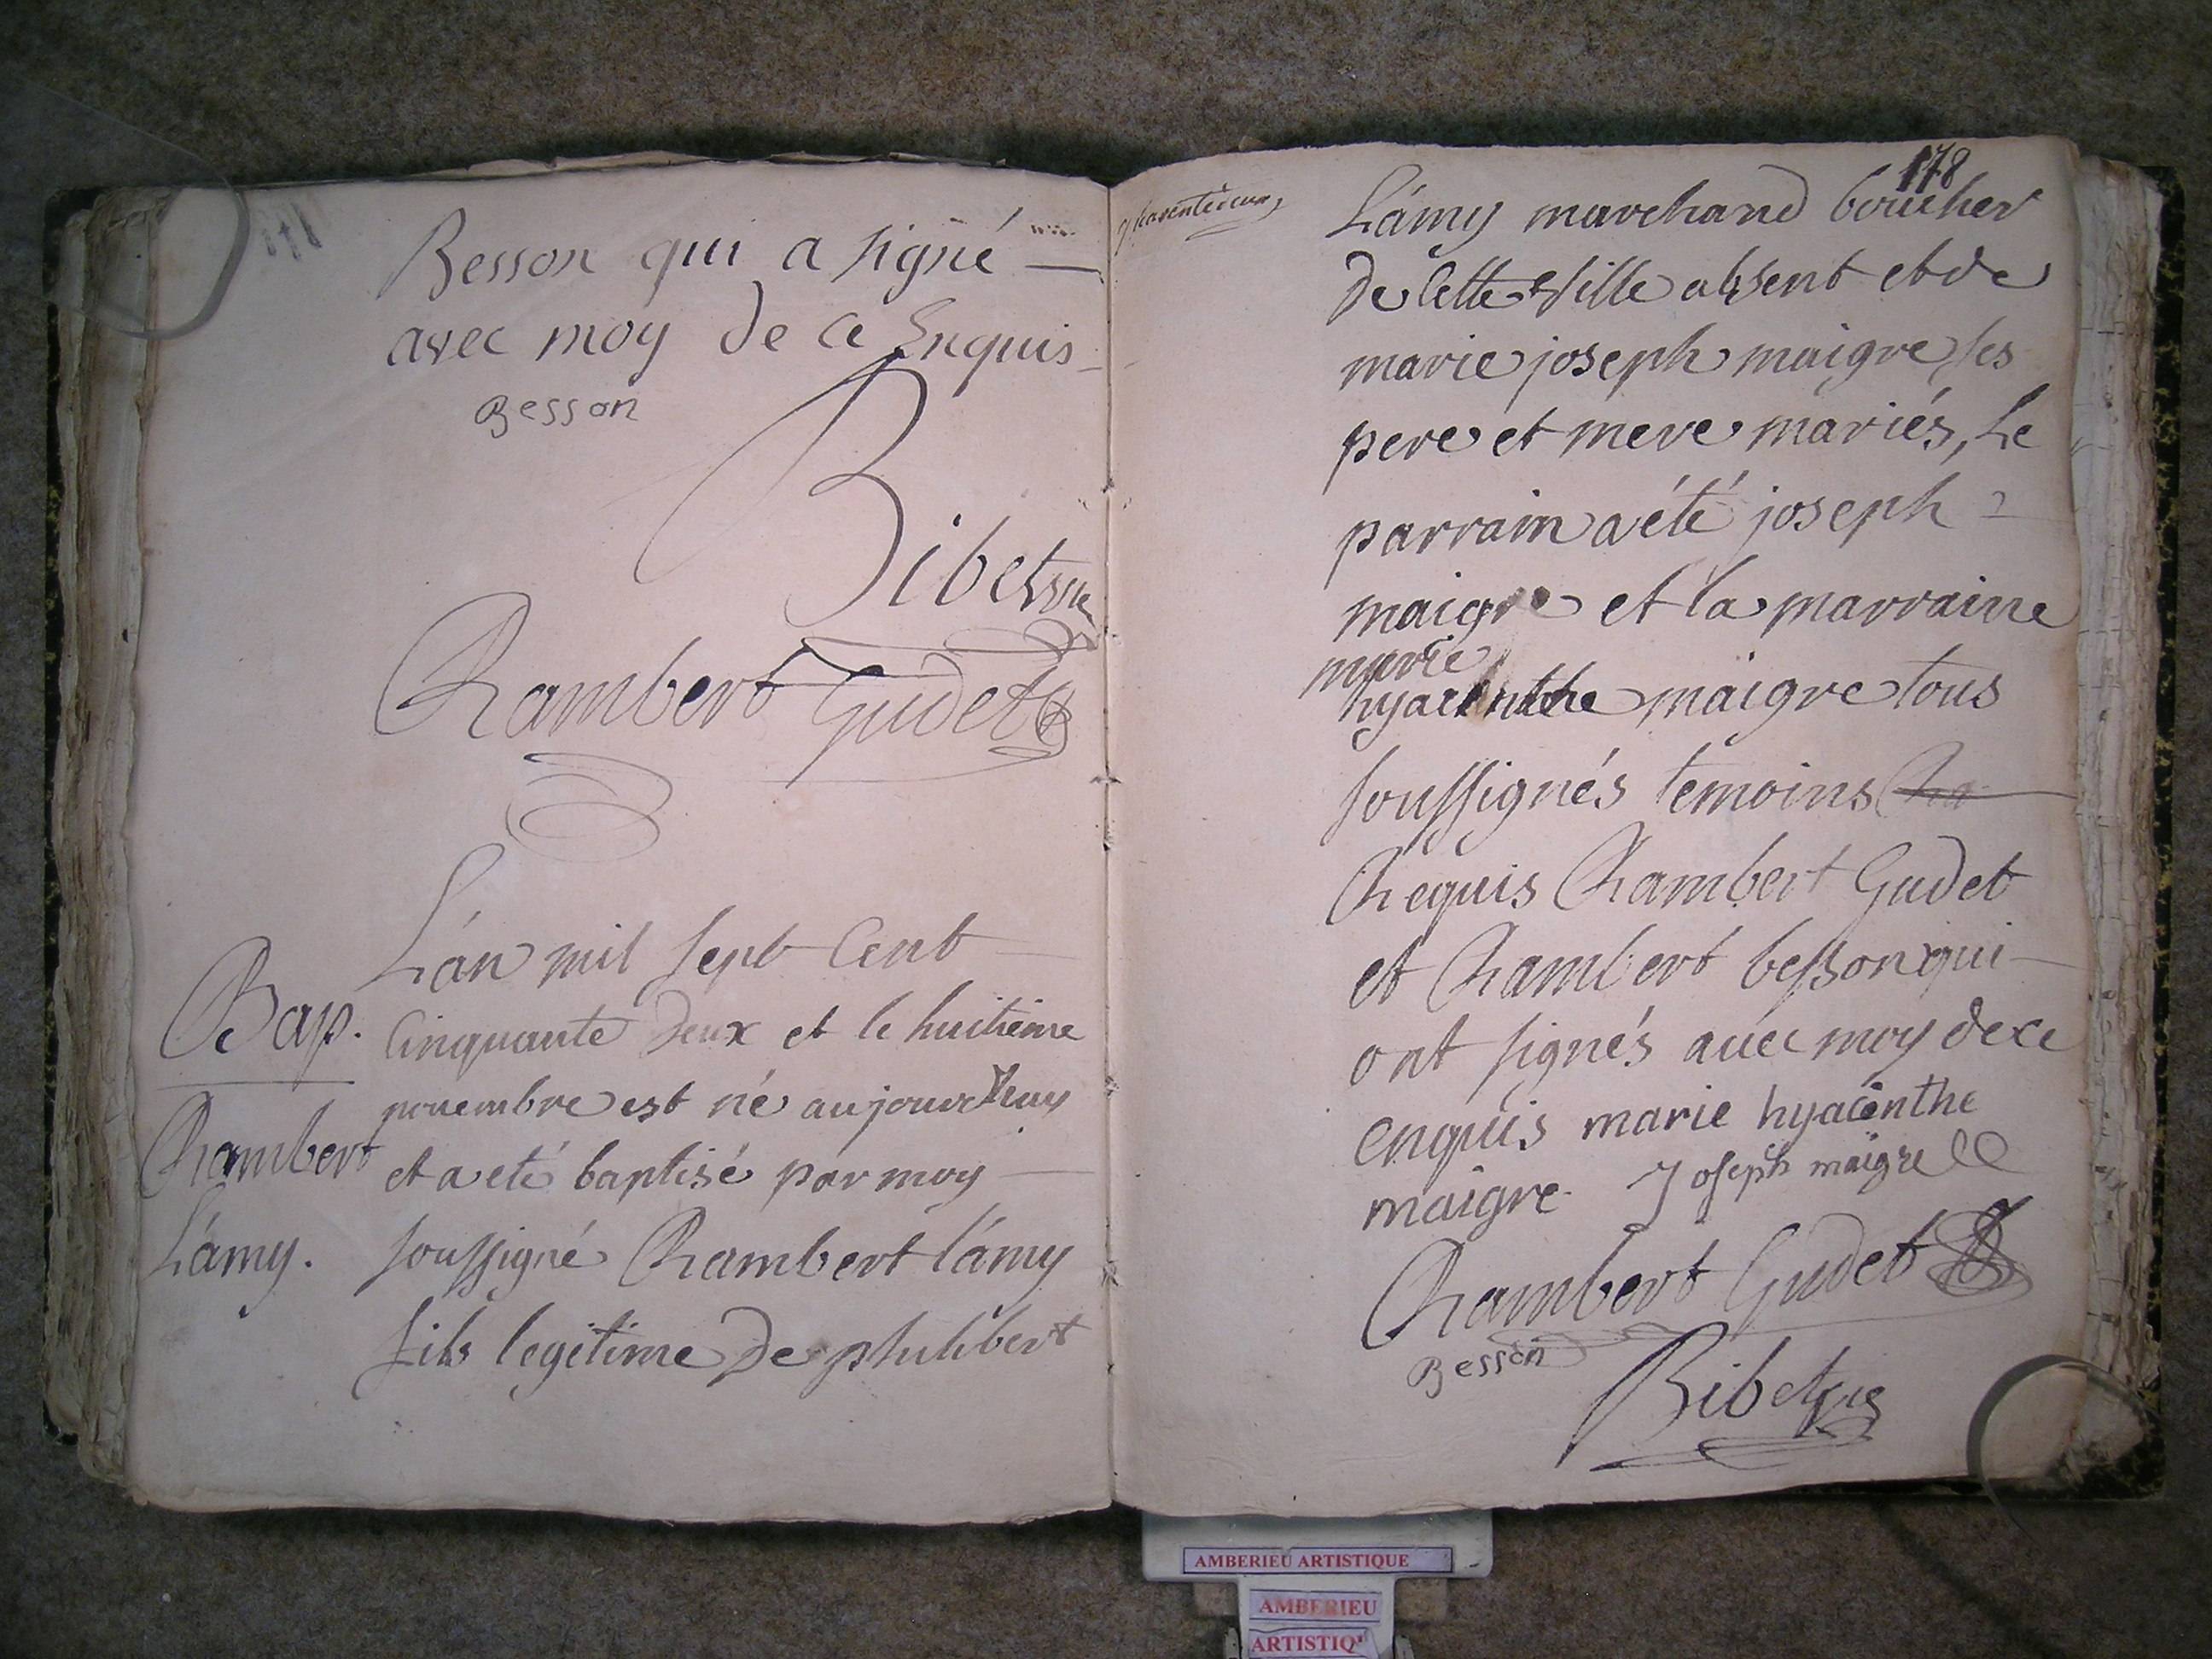 Besson qui a signé
avec moy de ce Enquis
Besson
Ribet vic
Rambert Gudet
Bap.
Rambert
Lámy.
L'án mil sept Cent
Cinquante deux et le huitiéme
nouembre est né aujourdhuy
et a eté baptisé par moy
soussigné Rambert lámy
fils legitime de philibert
178
Lámy marchand boucher
de Cette Ville absent et de
marie joseph maigre ses
pere et mere mariés, Le
parrain a été joseph
maigre et la marraine
marie
hyacinthe maigre tous
soussignés temoins
Requis Rambert Gudet
et Rambert besson qui
ont signés auec moy de ce
enquis marie hyacinthe
maigre Joseph maigre
Rambert Gudet
Besson
Ribet vic
AMBERIEU ARTISTIQUE
AMBERIEU
ARTISTIQ